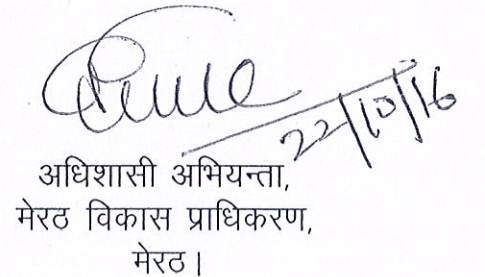 22/10/16
अधिशासी अभियन्ता,
मेरठ विकास प्राधिकरण,
मेरठ।